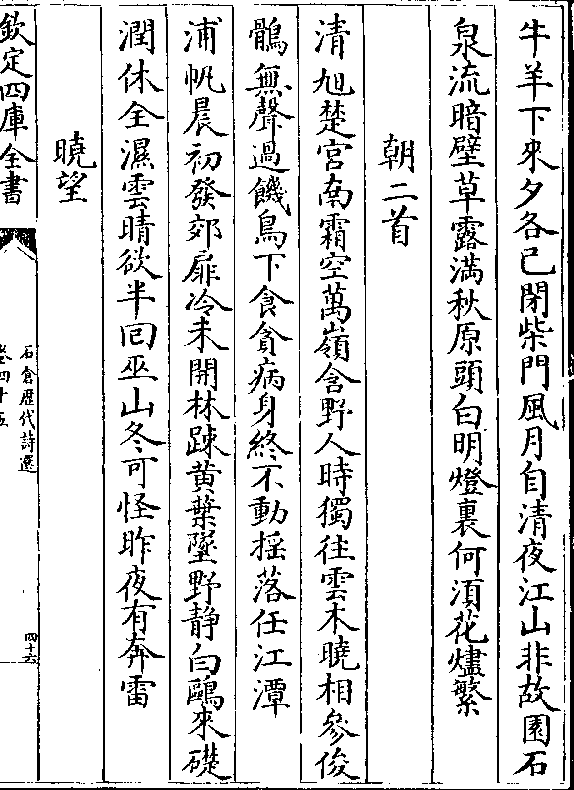 牛羊下來夕各已閉柴門風月自清夜江山非故園石
泉流暗壁草露滿秋原頭白明燈裏何須花燼繁
朝二首
清旭楚宮南霜空萬嶺含野人時獨往雲木曉相參俊
鶻無聲過饑烏下食貪病身終不動揺落任江潭
浦帆晨初發郊扉冷未開林踈黄葉墜野静白鷗來礎
潤休全濕雲晴欲半回巫山冬可怪昨夜有奔雷
曉望
欽定四庫全書
石倉歴代詩選
卷四十五
四十六